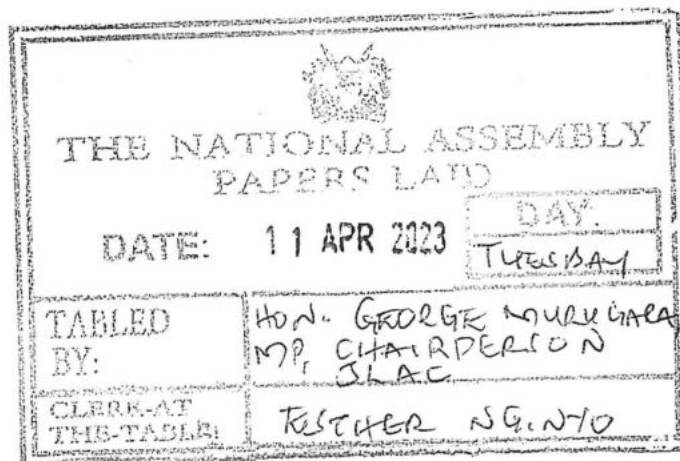 THE NATIONAL ASSEMBLY
PAPERS LAID
DATE: 11 APR 2023
DAY:
TUESDAY
TABLED
BY:
HON. GEORGE MURUGARA
MP, CHAIRPERSON
JLAC
CLERK-AT
THE-TABLE: